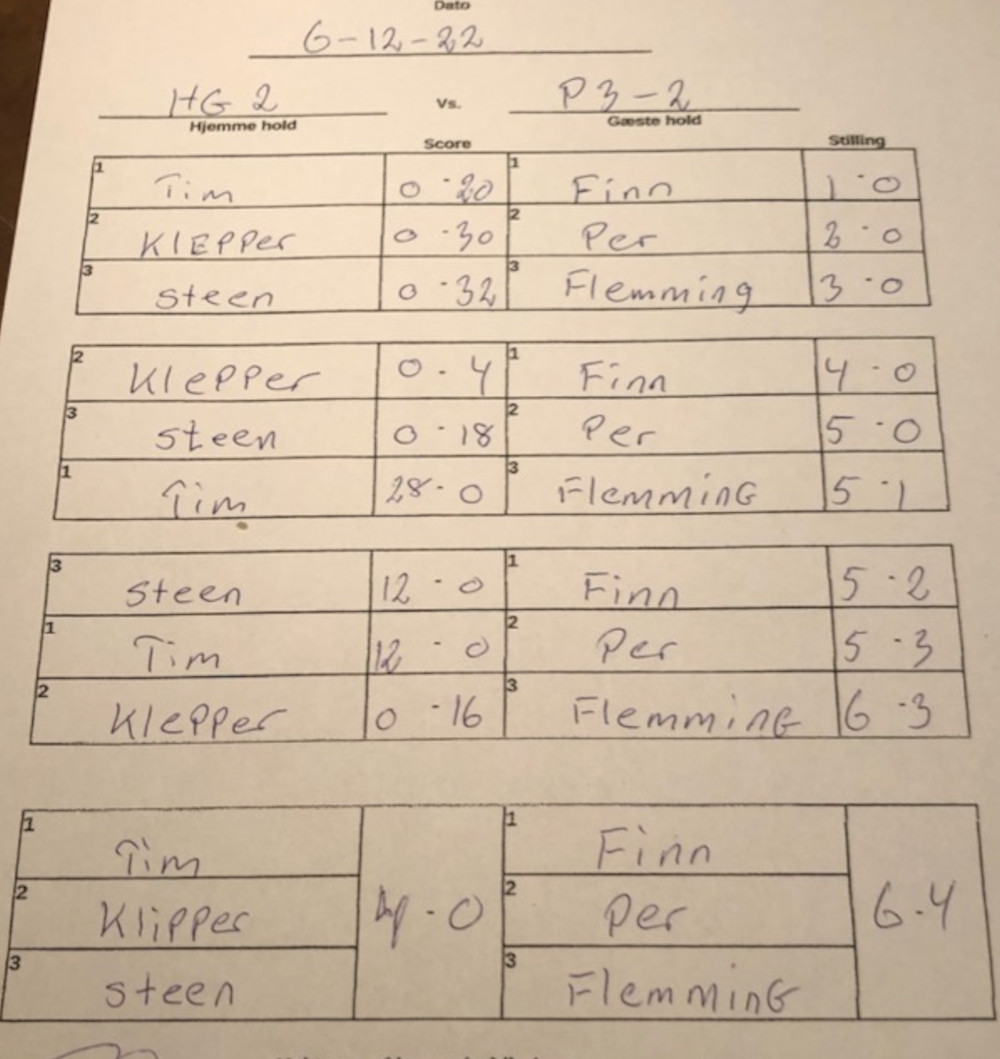 Dato
6-12-22
HG 2 Vs. P3-2
Hjemme hold Gæste hold
Score Stilling
1 Tim 0-20 1 Finn 1-0
2 KlEPPer 0-30 2 Per 2-0
3 steen 0-32 3 Flemming 3-0
2 KlePPer 0-4 1 Finn 4-0
3 steen 0-18 2 Per 5-0
1 Tim 28-0 3 FlemminG 5-1
3 steen 12-0 1 Finn 5-2
1 Tim 12-0 2 Per 5-3
2 KlePPer 0-16 3 FlemminG 6-3
1 Tim 1 Finn
2 Klipper -0 2 Per 6-4
3 steen 3 FlemminG